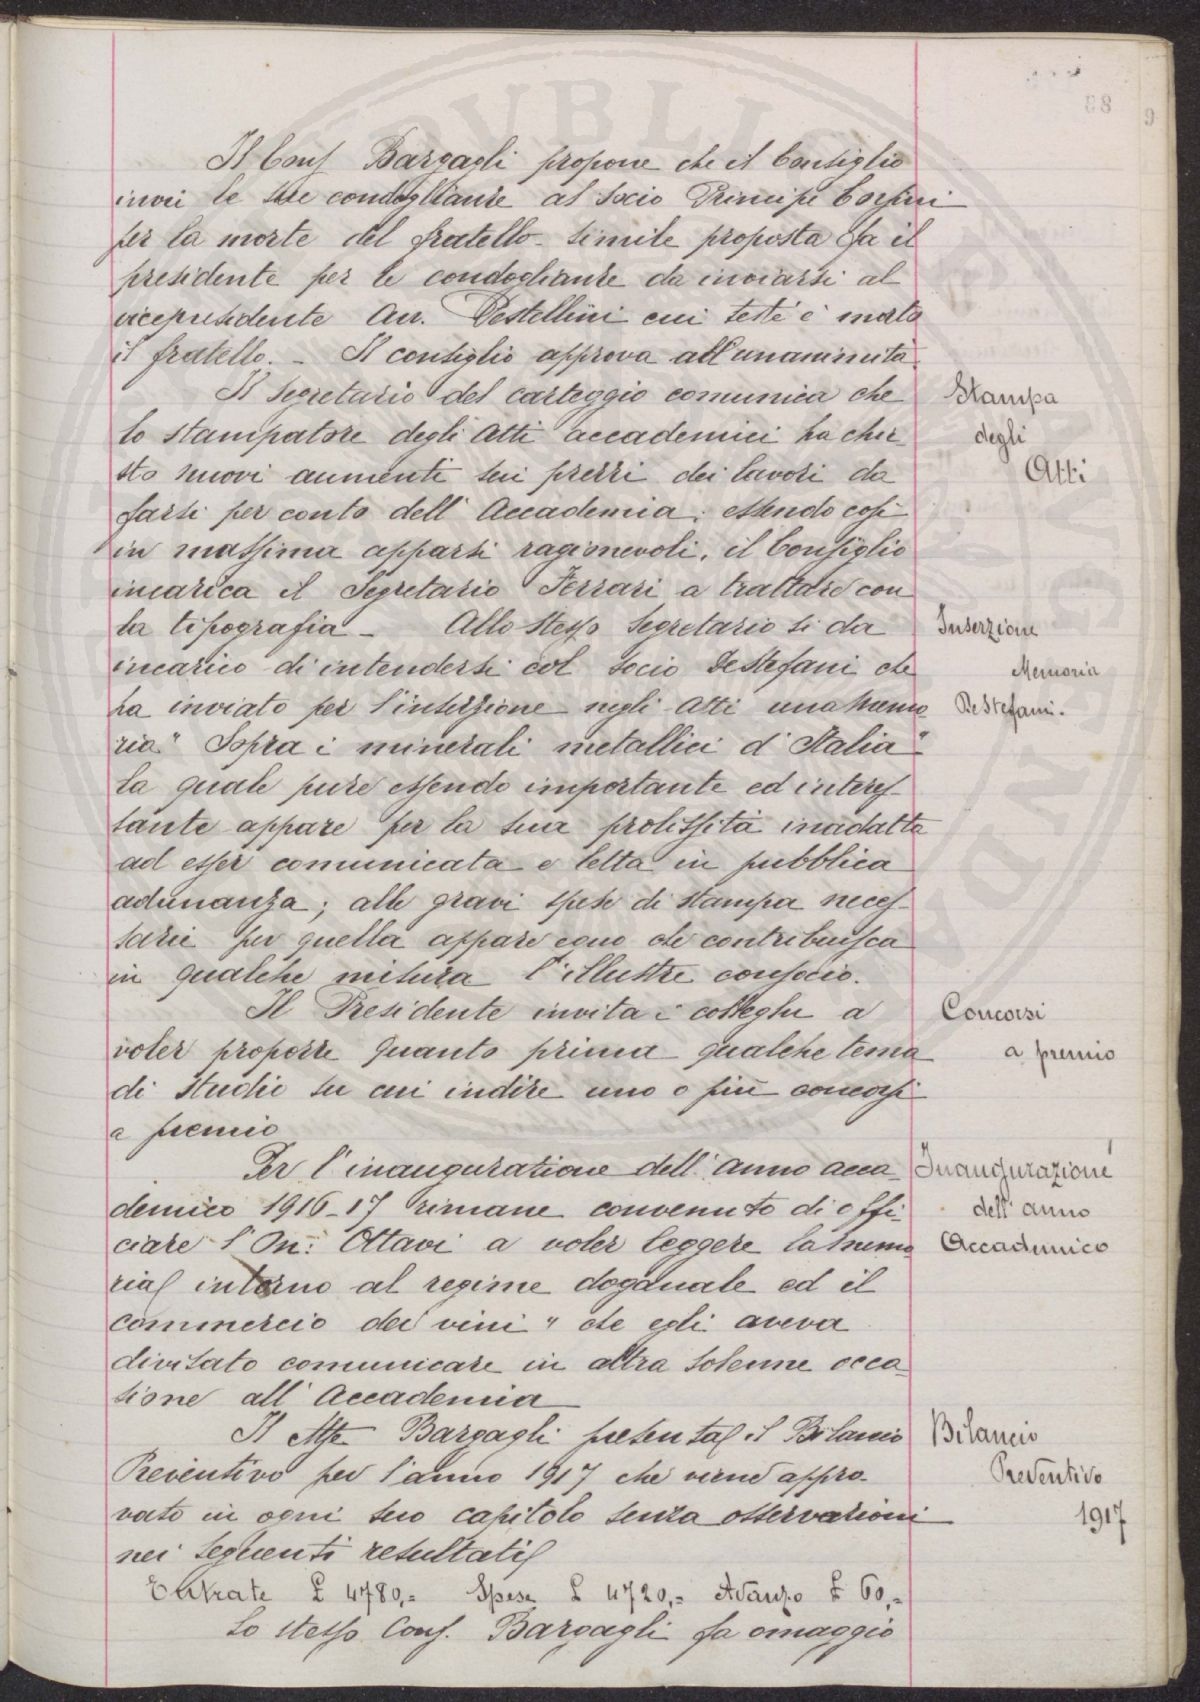 88
Il Cons. Bargagli propone che il Consiglio
invii le sue condoglianze al socio Principe Corsini
per la morte del fratello - simile proposta fa il
presidente per le condoglianze da inviarsi al
vicepresidente Avv. Pestellini cui testé è morto
il fratello. - Il consiglio approva all'unanimità.
Il Segretario del carteggio comunica che
Stampa
lo stampatore degli Atti accademici ha chie
degli
sto nuovi aumenti sui prezzi dei lavori da
Atti
farsi per conto dell'Accademia: essendo così
in massima apparsi ragionevoli, il Consiglio
incarica il Segretario Ferrari a trattare con
la tipografia - Allo stesso Segretario si da
Inserzione
incarico di intendersi col socio De Stefani che
Memoria
ha inviato per l'inserzione negli Atti una memo
De Stefani.
ria "Sopra i minerali metallici d'Italia"
la quale pure essendo importante ed interes-
sante appare per la sua prolissità inadatta
ad esser comunicata e letta in pubblica
adunanza; alle gravi spese di stampa neces-
sarie per quella appare equo che contribuisca
in qualche misura l'illustre consocio.
Il Presidente invita i colleghi a
Concorsi
voler proporre quanto prima qualche tema
a premio
di studio su cui indire uno o più concorsi
a premio
Per l'inaugurazione dell'anno acca-
Inaugurazione
demico 1916-17 rimane convenuto di offi-
dell'anno
ciare l'On: Ottavi a voler leggere la memo
Accademico
ria intorno al regime doganale ed il
commercio dei vini" che egli aveva
divisato comunicare in altra solenne occa-
sione all'Accademia
Il Bargagli presenta il Bilancio
Bilancio
Preventivo per l'anno 1917 che viene appro-
Preventivo
vato in ogni suo capitolo senza osservazioni
1917
nei seguenti resultati
Entrate £ 4780,= Spese £ 4720,= Avanzo £ 60,=
Lo stesso Cons. Bargagli fa omaggio